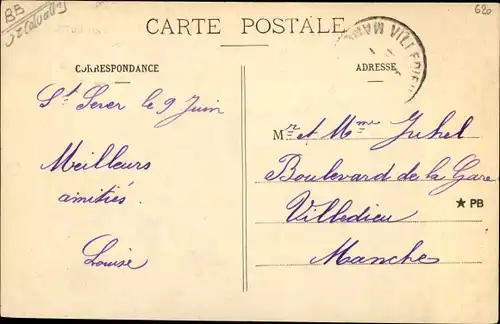 BB
620
CARTE POSTALE
CORRESPONDANCE
ADRESSE
St Sever le 9 Juin
Meilleurs
amitiés.
Louise
Mr et Mme Juhel
Boulevard de la Gare
Villedieu
Manche
★ PB